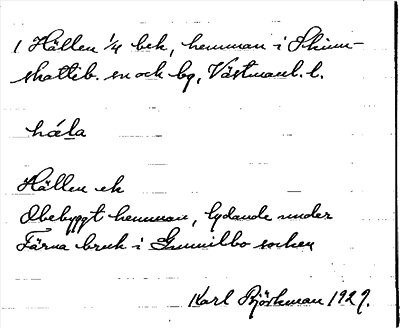 1 Hällen 1/4 bek, hemman i Skinn-
skatteb. sn och bg, Västmanl. l.
há̱la
Hällen ek
Obebyggt hemman, lydande under
Färna bruk i Gunnilbo socken
Karl Björkman 1927.